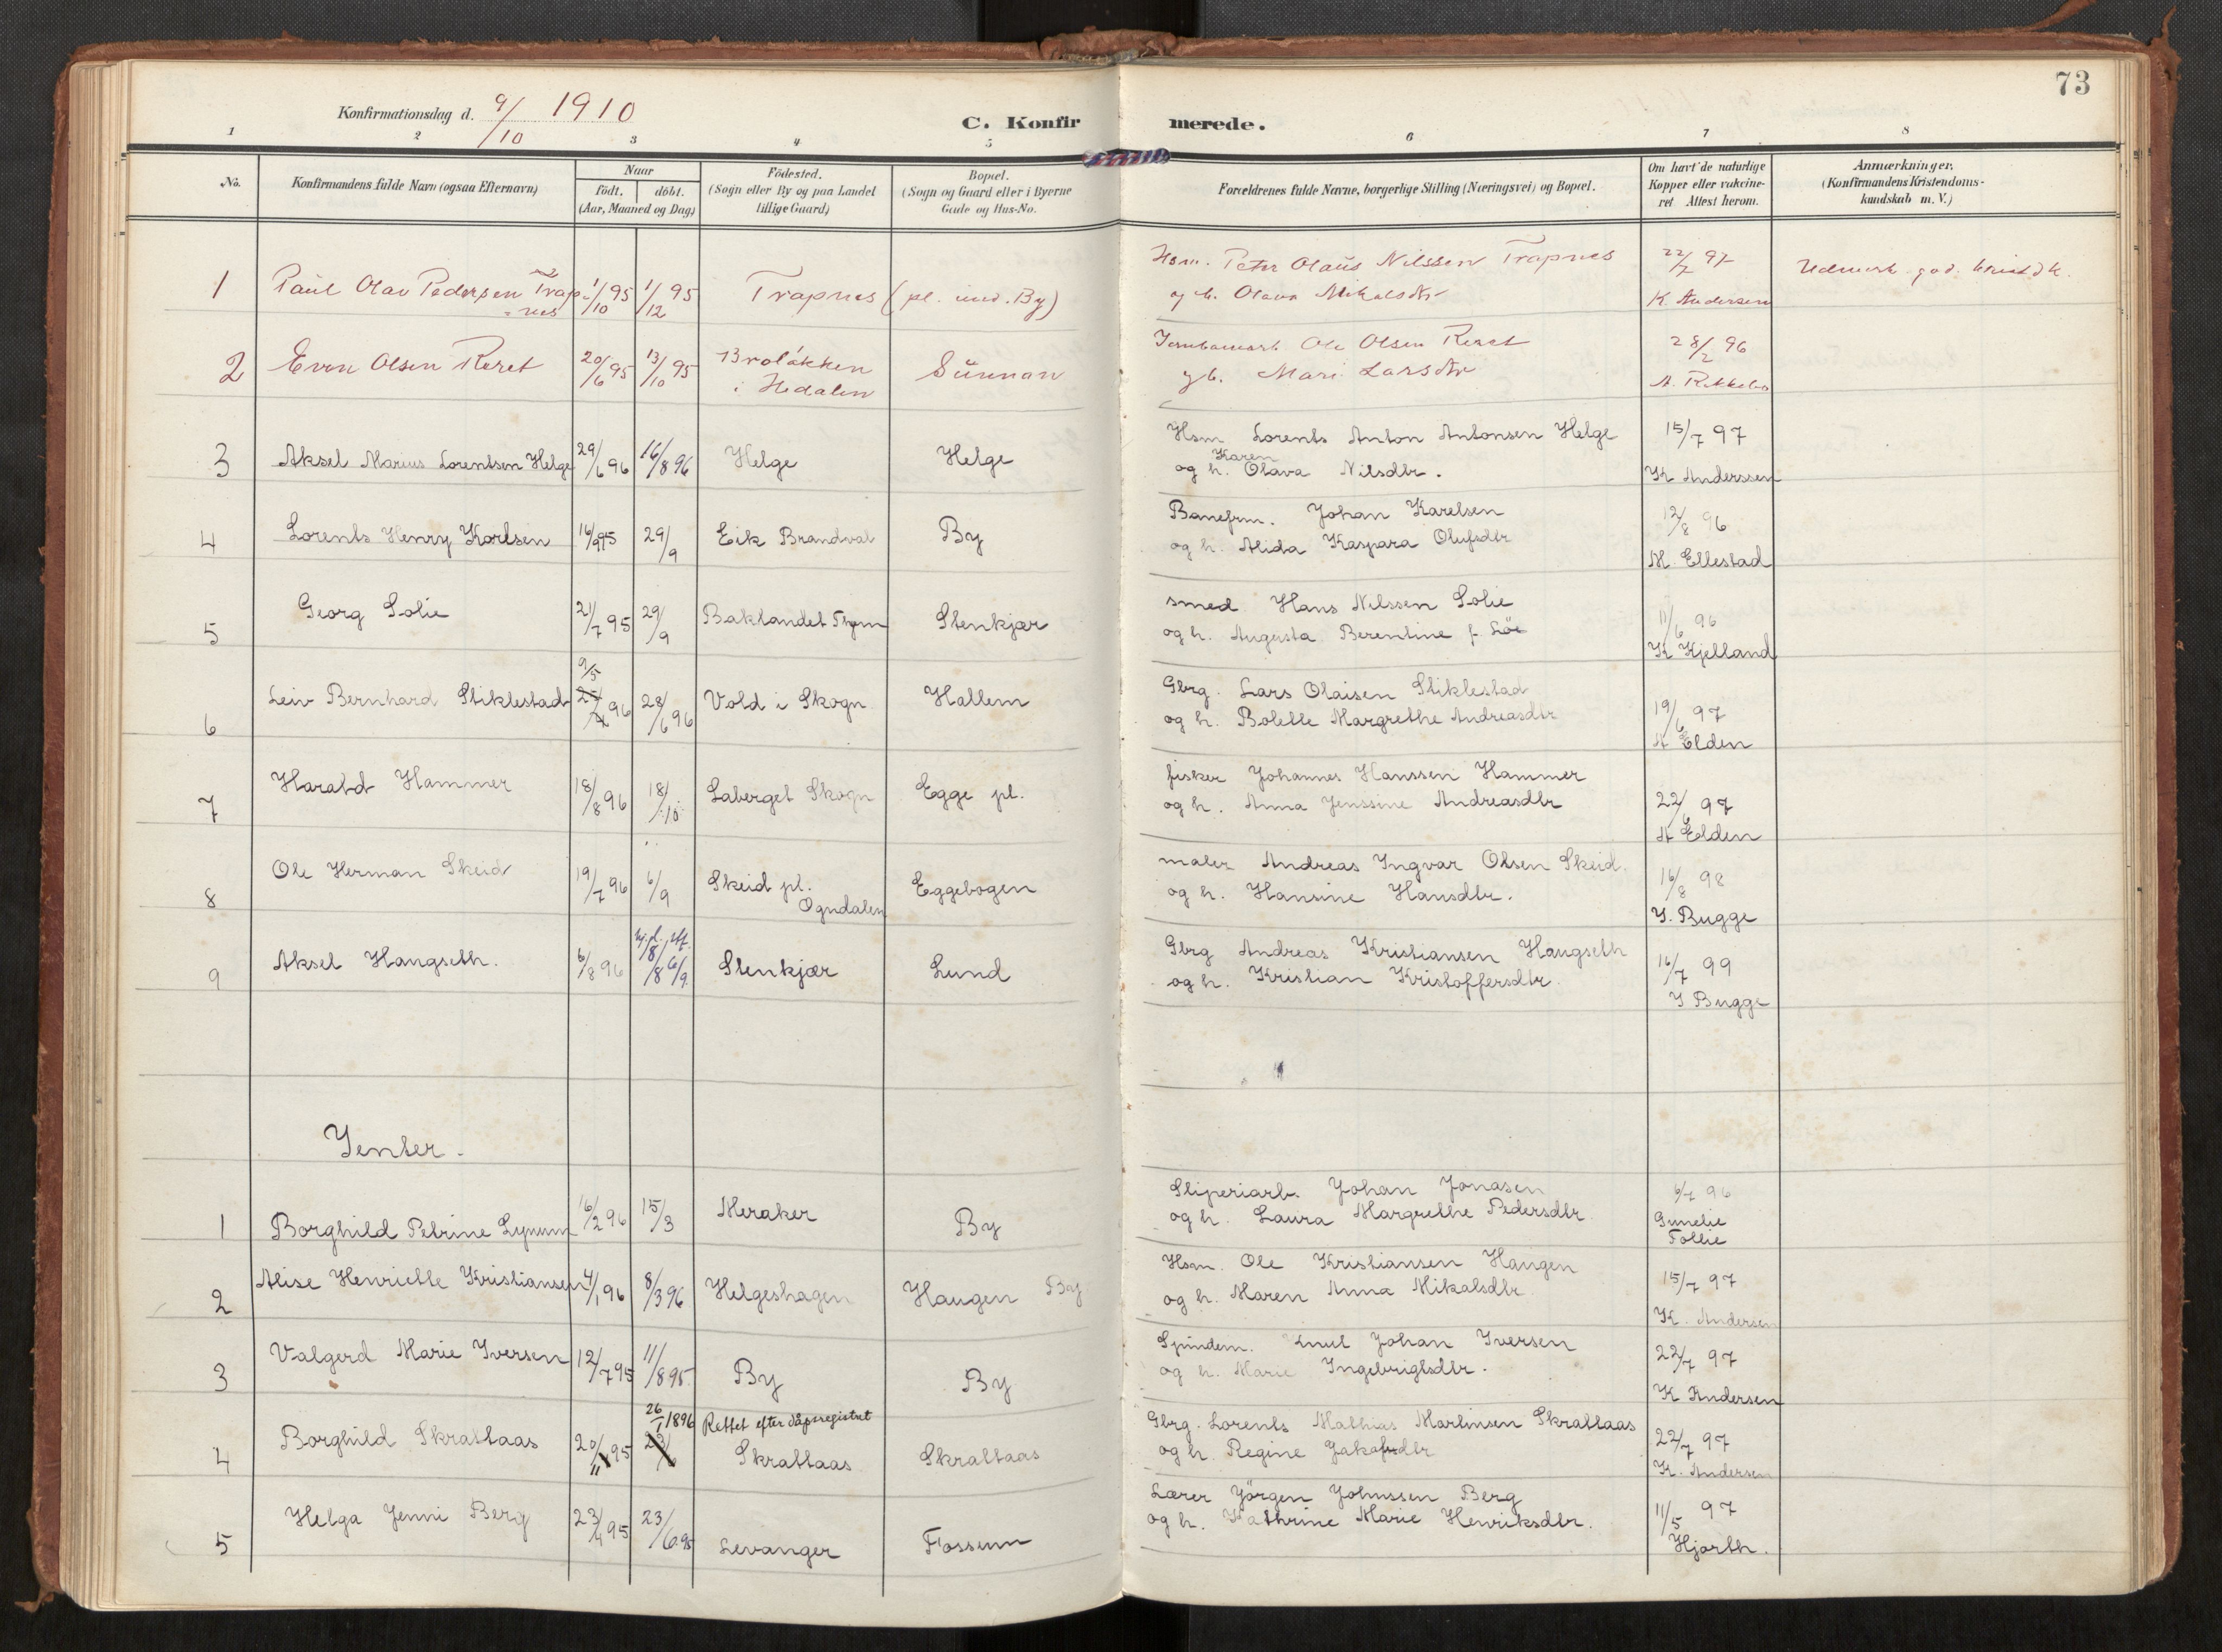 73
Konfirmationsdag d. 9/10 1910
C. Konfirmerede.
1 2 3 4 5 6 7 8
No.
Konfirmandens fulde Navn (ogsaa Efternavn)
Naar
födt. döbt.
(Aar, Maaned og Dag)
Födested.
(Sogn eller By og paa Landet
tillige Gaard)
Bopæl.
(Sogn og Gaard eller i Byerne
Gade og Hus-No.
Forældrenes fulde Navne, borgerlige Stilling (Næringsvei) og Bopæl.
Om havt de naturlige
Kopper eller vakcine-
ret. Attest herom.
Anmærkninger.
(Konfirmandens Kristendoms-
kundskab m. V.)
1 Paul Olav Pedersen Trap=nes 1/10 95 1/12 95 Trapnes (pl. und. By)
Hsm. Peter Olaus Nilssen Trapnes
og h. Olava Mikalsdtr
22/7 97
K. Andersen
2 Even Olsen Reret 20/6 95 13/10 95 Broløkken i Hedalen Sünnan
Ole Olsen Reret
g h. Mari Larsdtr
28/2 96
3 Aksel Marius Lorentsen Helge 29/6 96 16/8 96 Helge Helge
Hsm Lorents Anton Antonsen Helge
og h. Karen Olava Nilsdtr.
15/7 97
K Anderssen
4 Lorents Henry Karlsen 16/9 95 29/9 Eik Brandval By
Banefrm. Johan Karelsen
og h. Alida Kaspara Olufsdtr
12/8 96
M. Ellestad
5 Georg Solie 21/7 95 29/9 Baklandet Thjem Stenkjær
smed Hans Nilssen Solie
og h. Augusta Berentine f. Löe
11/6 96
K Kjelland
6 Leiv Bernhard Stiklestad 9/5 96 28/6 96 Vold i Skogn Hallem
Gbrg. Lars Olaisen Stiklestad
og h. Bolette Margrethe Andreasdtr
19/6 97
A Elden
7 Harald Hammer 18/8 96 18/10 Saberget Skogn Egge pl.
fisker Johannes Hanssen Hammer
og h. Anna Jenssine Andreasdtr
22/6 97
A Elden
8 Ole Herman Skeid 19/7 96 6/9 Skeid pl. Ogndalen Eggebogen
maler Andreas Ingvar Olsen Skeid.
og h. Hansine Hansdtr.
16/8 98
I. Bugge
9 Aksel Haugseth. 6/8 96 hj.d. 8/8 stf. 6/9 Stenkjær Lund
Gbrg Andreas Kristiansen Haugseth
og h. Kristian Kristoffersdtr
16/7 99
I Bugge
Jenter.
1 Borghild Petrine Lynum 16/2 96 15/3 Meraker By
Sliperiarb. Johan Jonasen
og h. Laura Margrethe Pedersdtr
6/7 96
Gunelie
Follie
2 Alise Henriette Kristiansen 4/1 96 8/3 96 Helgeshagen Haugen By
Hsm. Ole Kristiansen Haugen
og h. Maren Anna Mikalsdtr
15/7 97
K. Andersen
3 Valgerd Marie Iversen 12/7 95 11/8 95. By By
Spindem. Knut Johan Iversen
og h. Marie Ingebrigtsdtr.
22/7 97
K Andersen
26/1 1896 Rettet efter dåpsregistret
4 Borghild Skrattaas 20/11 95 Skrattaas Skrattaas
Gbrg. Lorents Mathias Martinsen Skrattaas
og h. Regine Jakobsdtr
22/7 97
K. Andersen
5 Helga Jenni Berg 23/4 95 23/6 95 Levanger Fossum
Lærer Jörgen Johnssen Berg
og h. Kathrine Marie Henriksdtr.
11/5 97
Hjorth.